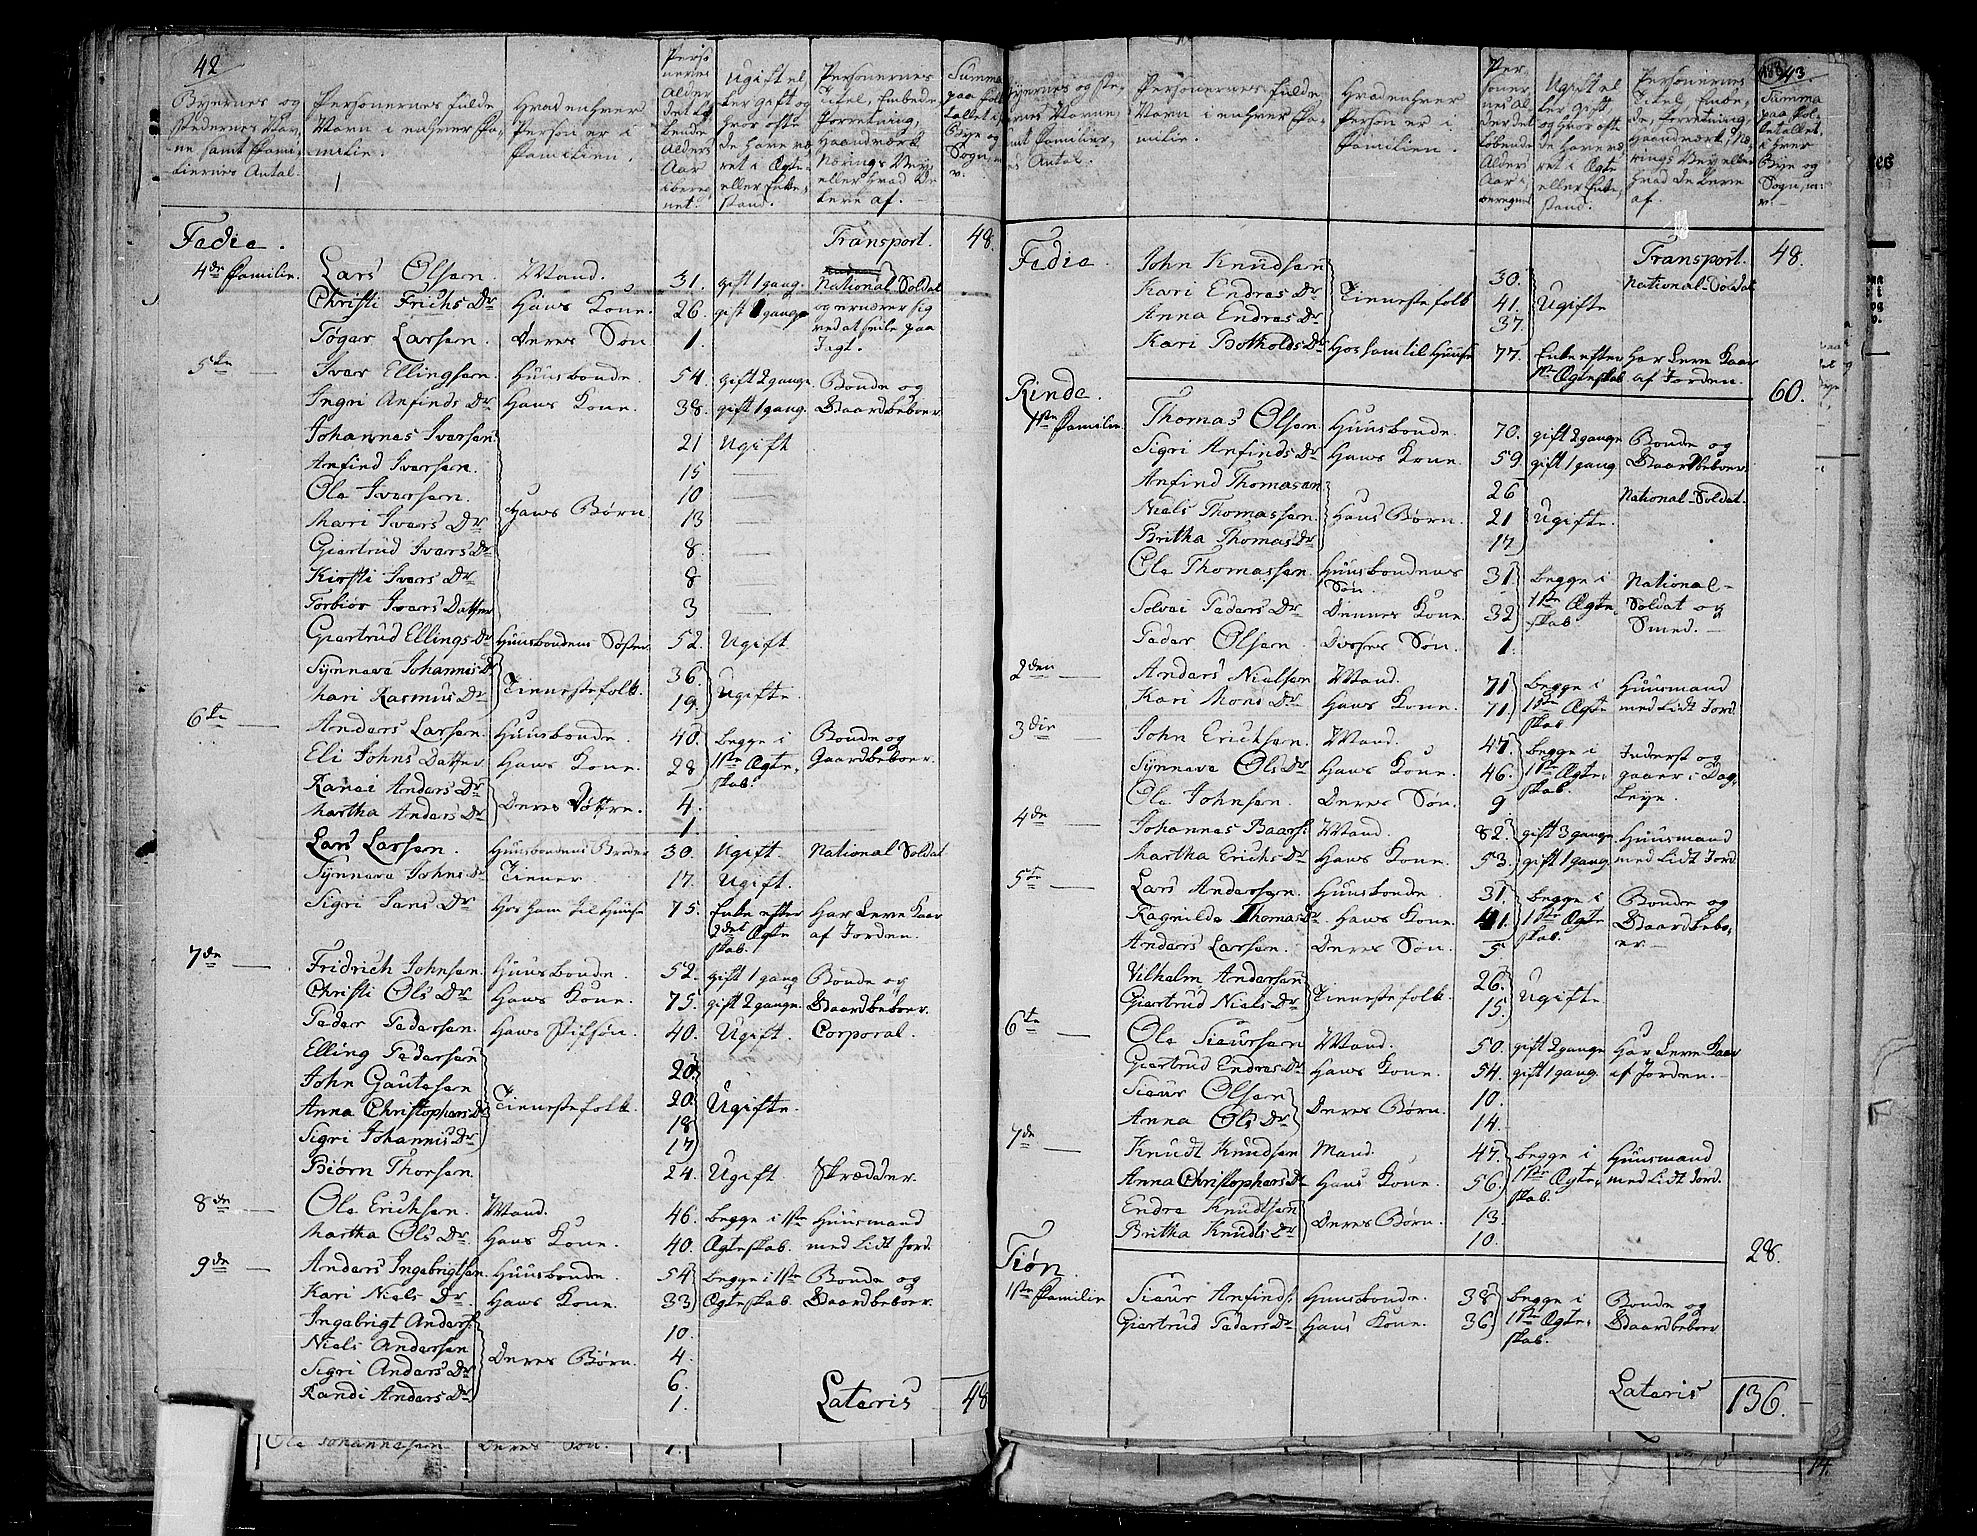 42
Byernes og Stedernes Navne samt Familiernes Antal.
Personernes fulde Navn i enhver Familie.
Hvad enhver Person er i Familien.
Personernes Alder det løbende Alders Aar iberegnet.
Ugift eller gift og hvor ofte de have været i Ægte- eller Enkestand.
Personernes Titel, Embede, Forretning, Haandværk, Nærings Vey, eller hvad De leve af.
Summa paa Folketallet i Bye og Sogn
Fedie. Transport. 48.
4de Familie. Lars Olsen. Mand. 31. gift 1 gang. National Soldat
Christi Frichs Dr Hans Kone. 26. gift 1 gang og ernærer sig
Tøger Larsen. Deres Søn 1. ved at seile paa
Jagt.
5te Iver Ellingsen. Huusbonde. 54. gift 2 gange. Bonde og
Ingri Anfinds Dr Hans Kone. 38. gift 1 gang. Gaardbeboer.
Johannes Iversen 21 Ugift
Anfind Iversen. 15
Ole Iversen. 10
Mari Ivers Dr Hans Børn 13
Giertrud Ivers Dr 8.
Kirsti Ivers Dr 8
Torbiør Ivers Datter 3
Giertrud Ellings Dr Huusbondens Søster 52. Ugift.
Synneve Johannis Dr 36.
Mari Rasmus Dr Tienestefolk. 19. Ugifte.
6te Anders Larsen. Huusbonde. 40. begge i Bonde og
Eli Johns Datter Hans Kone. 28 1ste Ægte- Gaardbeboer.
skab.
Ranei Anders Dr 4.
Martha Anders Dr Deres Døttre. 1
Lars Larsen. Huusbondens Broder 30. Ugift. National Soldat
Synneve Johns Dr Tiener 17. Ugift.
Sigri Jans Dr Hos ham til Huuse 75. Enke efter Har Leve Kaar
2det Ægte af Jorden.
skab.
7de Fridrich Johnsen. Huusbonde. 52. gift 1 gang Bonde og
Christi Ols Dr Hans Kone. 75. gift 2 gange. Gaardbeboer.
Peder Pedersen. Hans Stifsøn. 40. Ugift. Corporal.
Elling Pedersen 20.
John Gautesen 20
Anna Christophers Dr Tienestefolk. 18 Ugifte.
Sigri Johannis Dr 17
Biørn Thorsen 24. Ugift. Skrædder.
8de Ole Erichsen. Mand. 46. begge i 1ste Huusmand
Martha Ols Dr. Hans Kone. 40. Ægteskab. med lidt Jord.
9de Anders Ingebrigtsen. Huusbonde. 54 begge i 1ste Bonde og
Kari Niels Dr. Hans Kone. 33 Ægteskab. Gaardbeboer.
Ingebrigt Anders: 10.
Niels Andersen 4.
Sigri Anders Dr Deres Børn. 6.
Randi Anders Dr 1.
Lateris 48
Ole Johannesen Deres Søn. 1.
43
Personernes fulde Navn i enhver Familie.
Hvad enhver Person er i Familien.
Personernes Alder det løbende Alders Aar iberegnet
Ugift eller gift og hvor ofte de have været i Ægte- eller Enkestand.
Personernes Titel, Embede, Forretning, Haandværk, Nærings Vey eller hvad De leve af.
Summa paa Folketallet i hver Bye og Sogn
Fedie. Transport. 48.
John Knudsen 30. National-Soldat
Kari Endres Dr Tienestefolk 41. Ugifte
Anna Endres Dr 37.
Kari Botholds Dr Hos ham til Huuse 77. Enke efter Har Leve Kaar
1ste Ægteskab af Jorden.
60.
Rinde.
1ste Familie. Thomas Olsen. Huusbonde. 70. gift 2 gange Bonde og
Sigri Anfinds Dr Hans Kone. 59. gift 1 gang. Gaardbeboer
Anfind Thomasen 26 National-Soldat
Niels Thomassen. Hans Børn. 21 Ugifte.
Britha Thomas Dr 17
Ole Thomassen. Huusbondens 31. begge i National-
Søn. 1ste Ægte- Soldat og
Solvei Peders Dr Dennes Kone. 32 skab. Smed.
Peder Olsen Disses Søn. 1.
2den Anders Nielsen Mand. 71 begge i Huusmand
Kari Mons Dr Hans Kone. 71. 1ste Ægte med lidt Jord.
skab
3die John Erichsen. Mand. 47. begge i Inderst og
Synneve Ols Dr Hans Kone. 46. 1ste Ægte- gaaer i Dag-
Ole Johnsen Deres Søn. 9 skab. leye.
4de Johannes Baars: Mand. 82. gift 3 gange Huusmand
Martha Erichs Dr Hans Kone. 53. gift 1 gang. med lidt Jord
5te Lars Andersen. Huusbonde 31. begge i Bonde og
Ragnilde Thomas Dr. Hans Kone 41. 1ste Ægte- Gaardbebo-
Anders Larsen. Deres Søn. 5. skab. er.
Vilhelm Andersen 26.
Giertrud Niels Dr Tienestefolk. 15. Ugifte
6te Ole Siursen Mand. 50. gift 2 gange Har Leve Kaar
Giertrud Endres Dr Hans Kone. 54. gift 1 gang. af Jorden.
Siur Olsen 10.
Anna Ols Dr Deres Børn. 14.
7de Knudt Knudsen Mand. 47. begge i Huusmand
Anna Christophers Dr Hans Kone. 56. 1ste Ægte- med lidt Jord.
skab.
Endre Knudtsen 13.
Britha Knudts Dr Deres Børn. 10.
28.
Tiøn.
1ste Familie Siur Anfinds: Huusbonde. 38 begge i Bonde og
Giertrud Peders Dr Hans Kone. 36 1ste Ægte- Gaardbeboer
skab.
Lateris 136.
14.